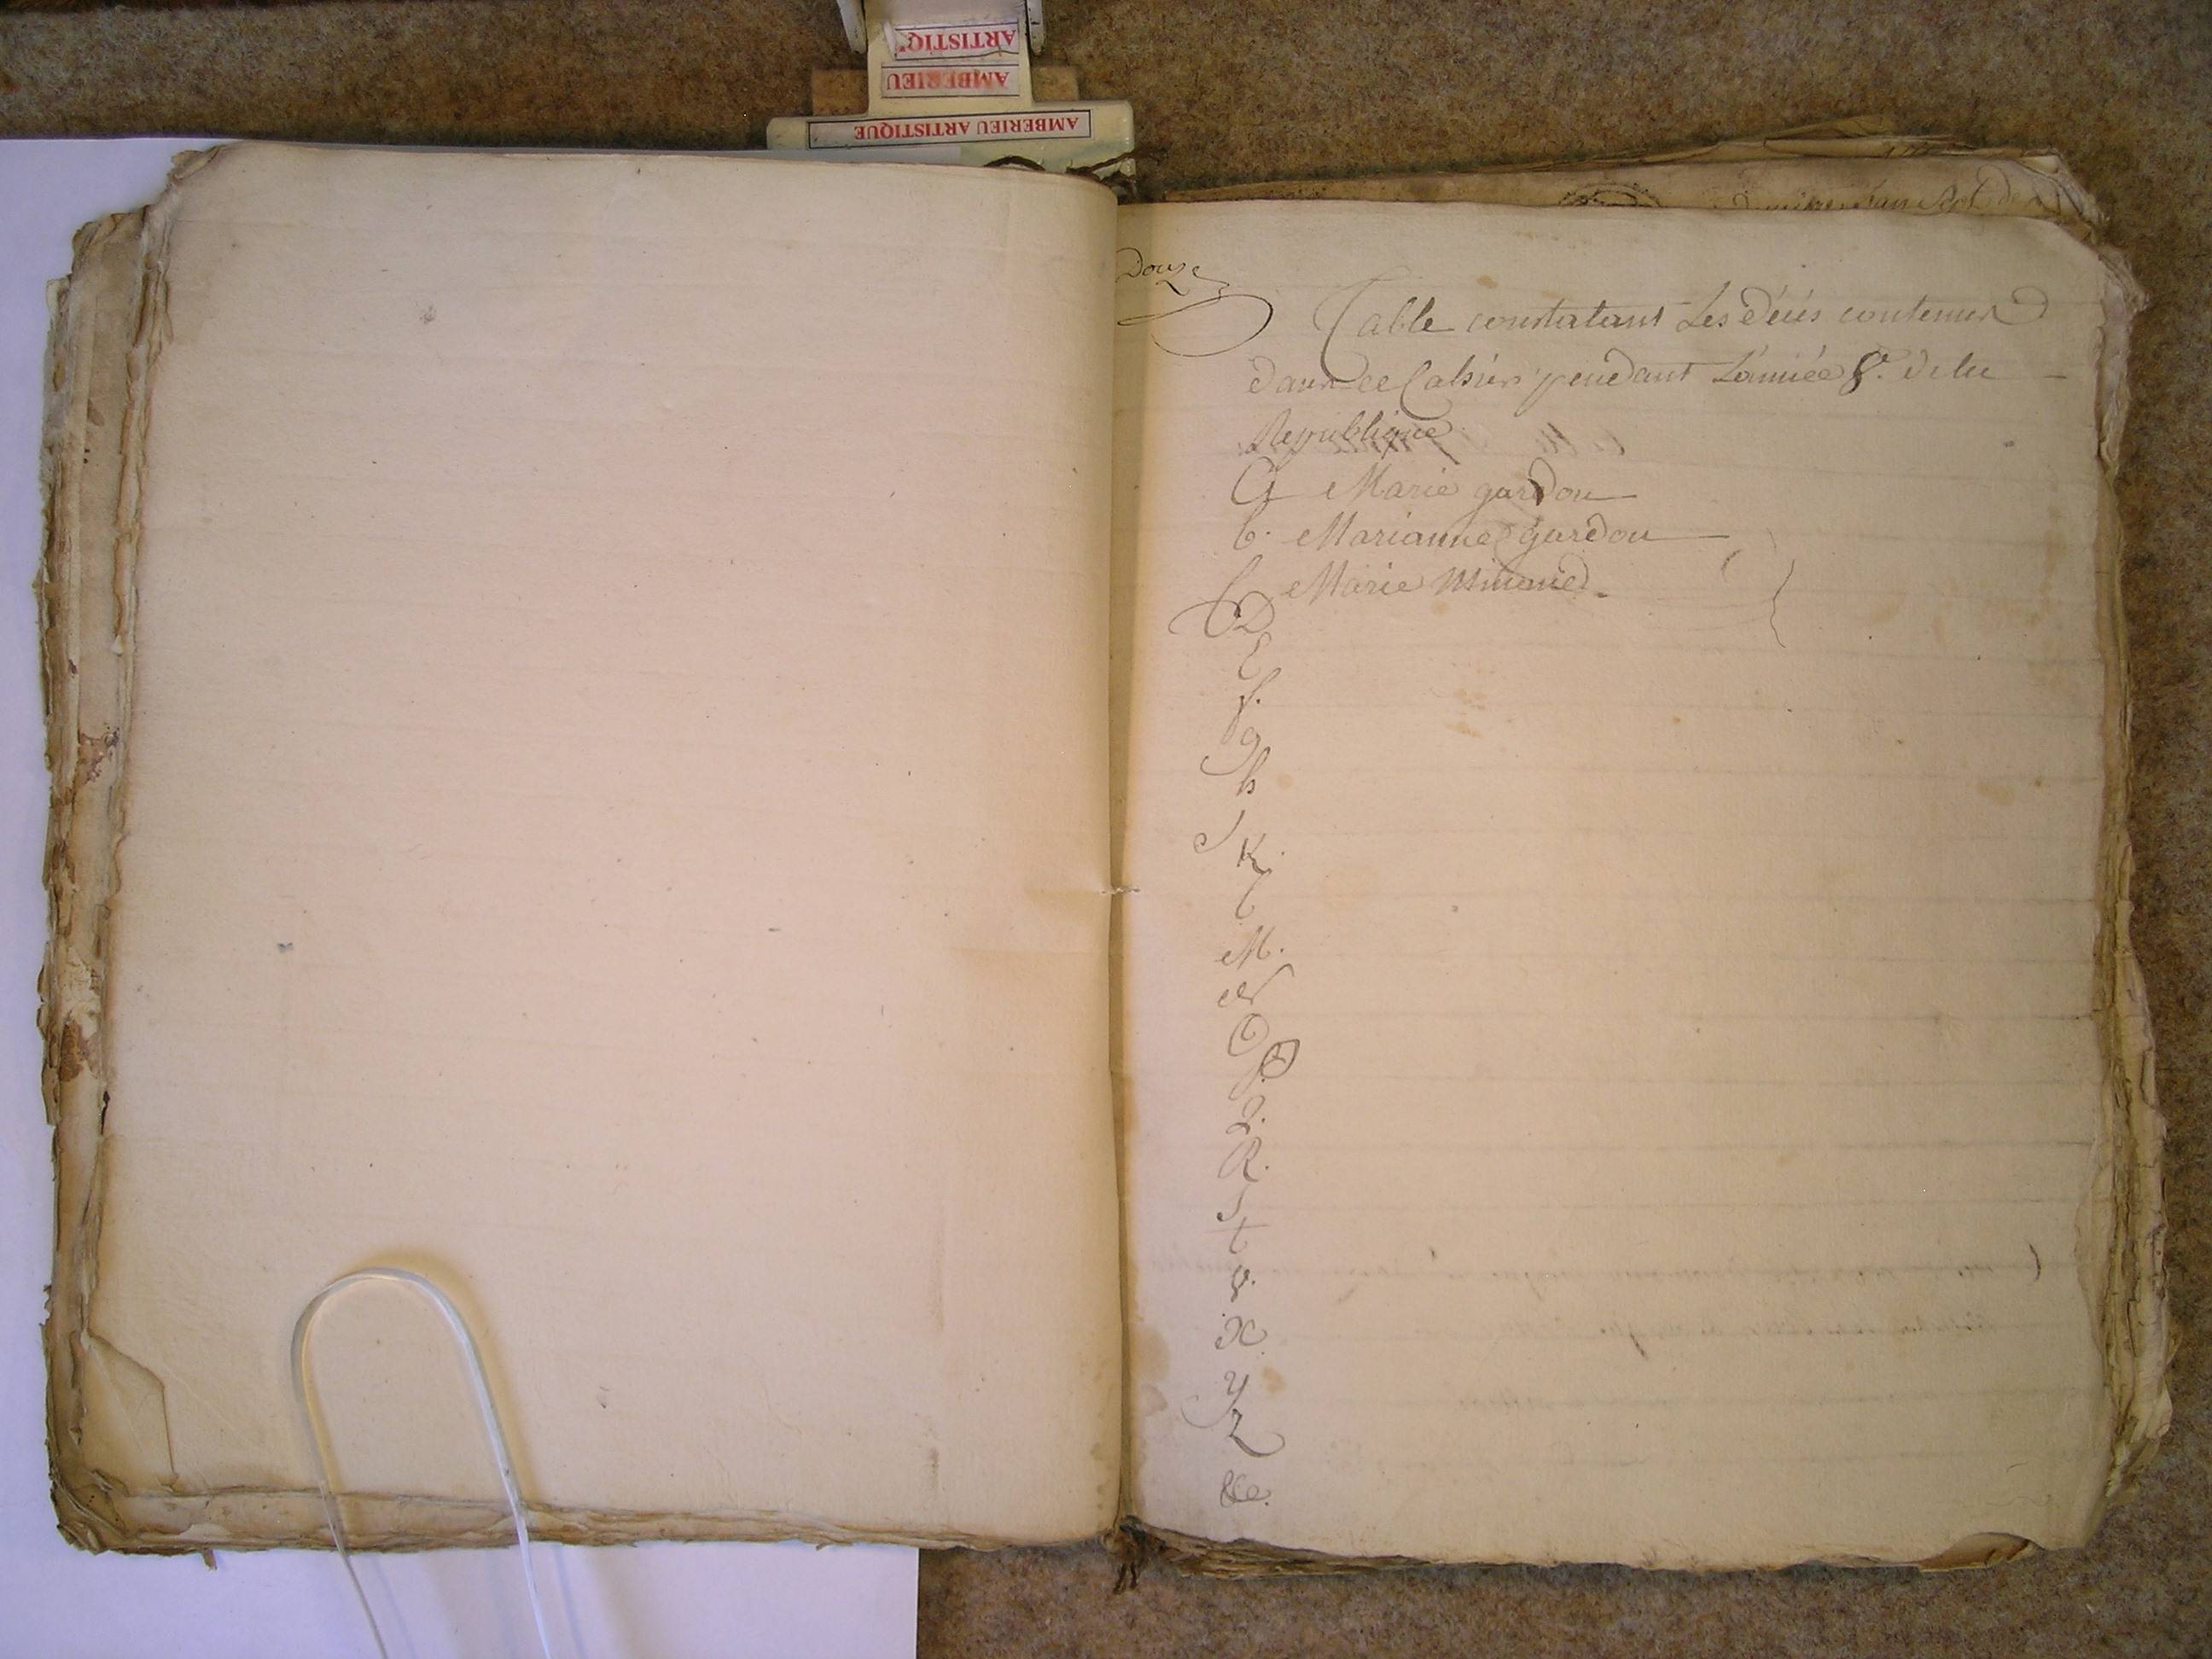 ARTISTIQ
AMBERIEU
AMBERIEU ARTISTIQUE
Douze
Table constatant Les décés contenus
dans ce Cahier pendant L'année 8e. de la
Republique
G Marie gardon
b. Marianne gardon
C Marie
D
E
f.
g
h
J
K.
L
M.
N
O
P.
Q.
R.
S
t
v.
x.
y
Z
&c.